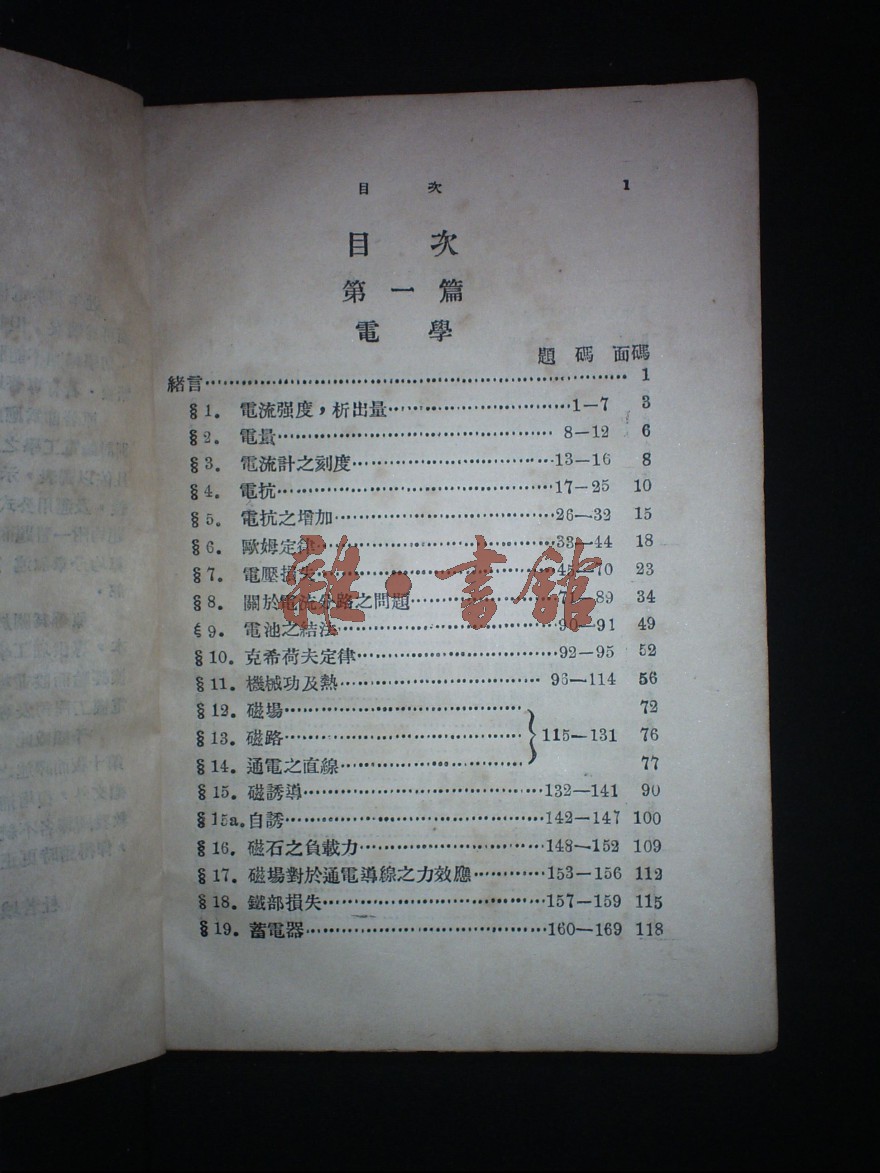 目 次 1
目 次
第 一 篇
電 學
題 碼 面碼
緒言 1
§1. 電流强度，析出量 1—7 3
§2. 電量 8—12 6
§3. 電流計之刻度 13—16 8
§4. 電抗 17—25 10
§5. 電抗之增加 26—32 15
§6. 歐姆定律 33—44 18
§7. 電壓損失 45—70 23
§8. 關於電流分路之問題 71—89 34
§9. 電池之結法 90—91 49
§10. 克希荷夫定律 92—95 52
§11. 機械功及熱 96—114 56
§12. 磁場 72
§13. 磁路 115—131 76
§14. 通電之直線 77
§15. 磁誘導 132—141 90
§15a. 自誘 142—147 100
§16. 磁石之負載力 148—152 109
§17. 磁場對於通電導線之力效應 153—156 112
§18. 鐵部損失 157—159 115
§19. 蓄電器 160—169 118
雜·書館